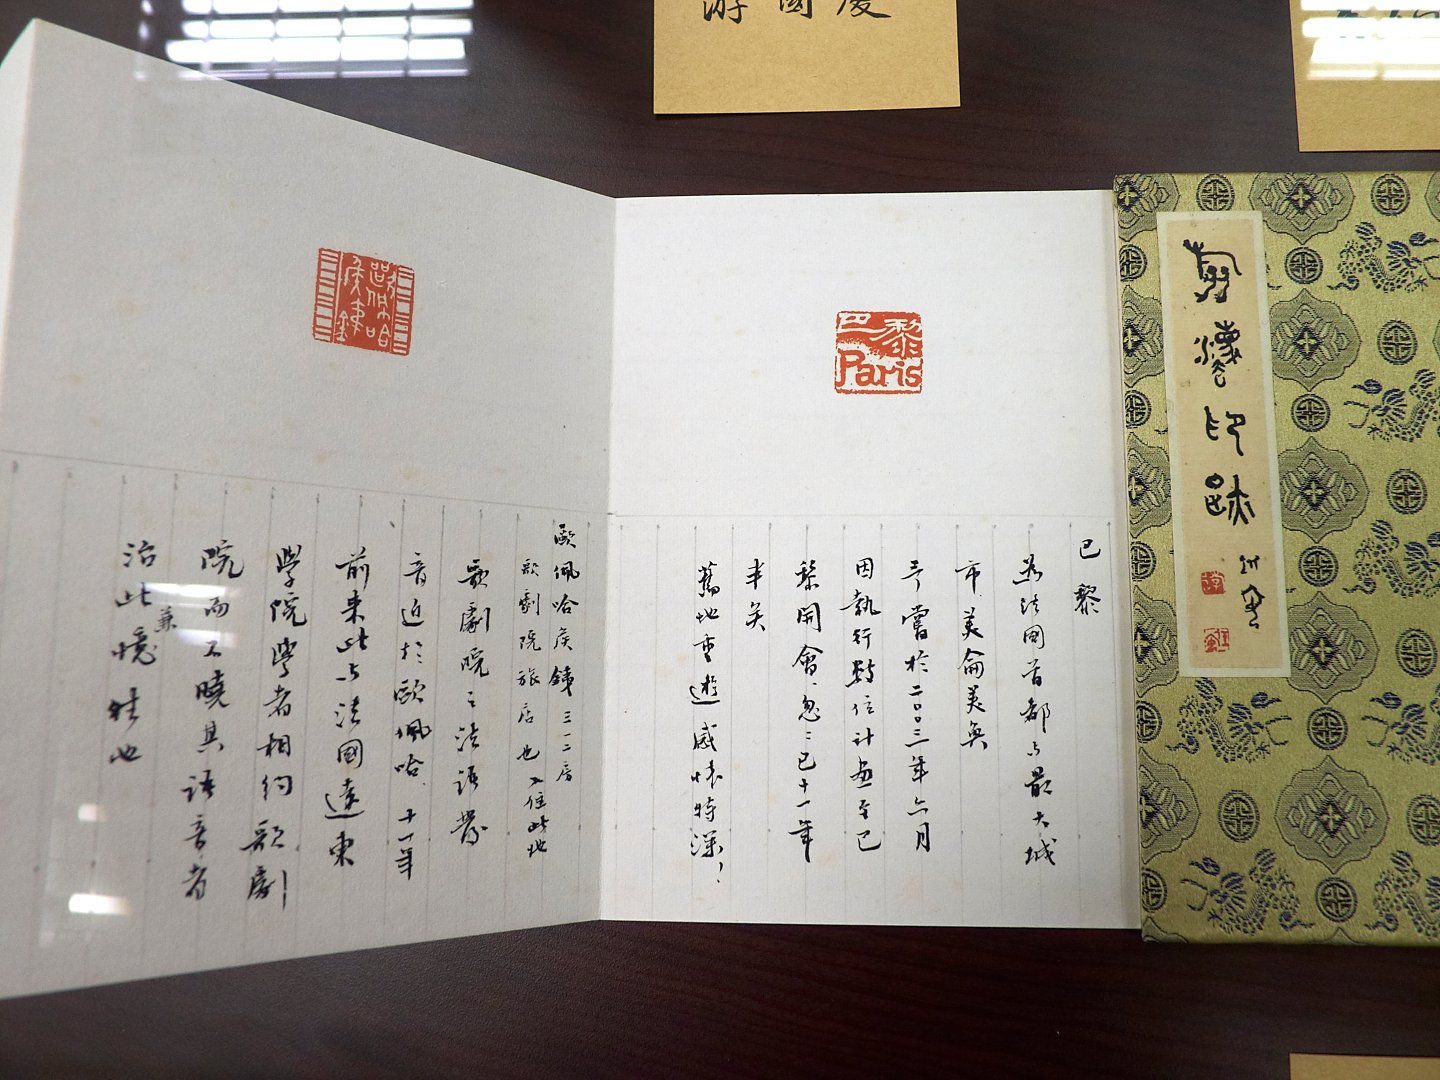 游國慶
印跡
巴黎
Paris
巴黎
為法國首都與最大城
市美侖美奐
予嘗於二○○三年六月
因執行數位計畫至巴
黎開會忽〻已十一年
半矣
舊地重遊感懷特深！
歐佩哈侯鐘
歐佩哈侯鐘三一二房
歌劇院旅店也入住此地
歌劇院之法語發
音近於歐佩哈十一年
前來此與法國遠東
學院學者相約歌劇
院而不曉其語音者
治此兼憶往也